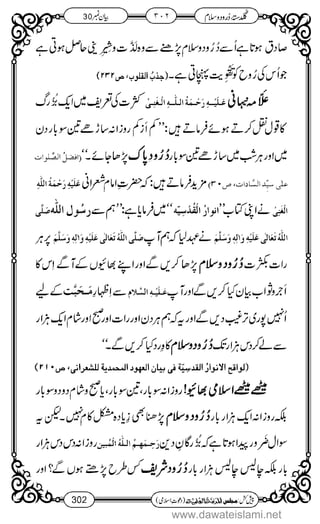 بیان نمبر30 ۳۰۲ گلدستۂ دُرُود و سلام
صادق ہوتا ہے اُسے دُرُود و سلام پڑھنے سے وہ لذت و شیرینی حاصل ہوتی ہے
جو اُس کی رُوح کو تقویت پہنچاتی ہے۔ (جذبُ القلوب، ص ۲۳۲)
علّامہ نبہانی عَلَیْہِ رَحْمَۃُ اللّٰہِ الْغَنِی کثرت کی تعریف میں ایک بُزرگ
کا قول نقل کرتے ہوئے فرماتے ہیں: ”کم از کم روزانہ ساڑھے تین سو بار دن
میں اور ہر شب میں ساڑھے تین سو بار دُرُودِ پاک پڑھا جائے۔“ (افضل الصلوات
علی سیّد السّادات، ص ۳۰) مزید فرماتے ہیں کہ: حضرتِ امام شعرانی عَلَیْہِ رَحْمَۃُ اللّٰہِ
الْغَنِی نے اپنی کتاب ”انوارُ الْقُدْسِیَّہ“ میں فرمایا ہے: ”ہم سے رسول اللّٰہ صَلَّی
اللّٰہُ تَعَالٰی عَلَیْہِ وَاٰلِہٖ وَسَلَّمَ نے عہد لیا کہ ہم آپ صَلَّی اللّٰہُ تَعَالٰی عَلَیْہِ وَاٰلِہٖ وَسَلَّمَ پر ہر
رات بکثرت دُرُود و سلام پڑھا کریں گے اور اپنے بھائیوں کے آگے اس کا
اَجر و ثواب بیان کیا کریں گے اور آپ عَلَیْہِ السَّلَام سے اِظہارِ مَحَبَّت کے لیے
اُنہیں پوری ترغیب دیں گے اور یہ کہ ہم ہر دن اور رات اور صبح اور شام ایک ہزار
سے لے کر دس ہزار تک دُرُود و سلام کا وِرد کیا کریں گے۔“
(لواقح الانوارُ القدسِیّۃ فی بیان العھود المحمدیۃ للشعرانی، ص ۲۱۰)
میٹھے میٹھے اسلامی بھائیو! روزانہ سو بار، تین سو بار، یا صبح و شام دو دو سو بار
بلکہ روزانہ ایک ہزار بار دُرُود و سلام پڑھنا بھی زِیادہ مشکل کام نہیں۔ لیکن یہ
سوال ضرور پیدا ہوتا ہے کہ بُزُرگانِ دین رَحِمَہُمُ اللّٰہُ الْمُبِیْن روزانہ دس دس ہزار
بار بلکہ چالیس چالیس ہزار بار دُرُود شریف کس طرح پڑھتے ہوں گے؟ اور
302
www.dawateislami.net